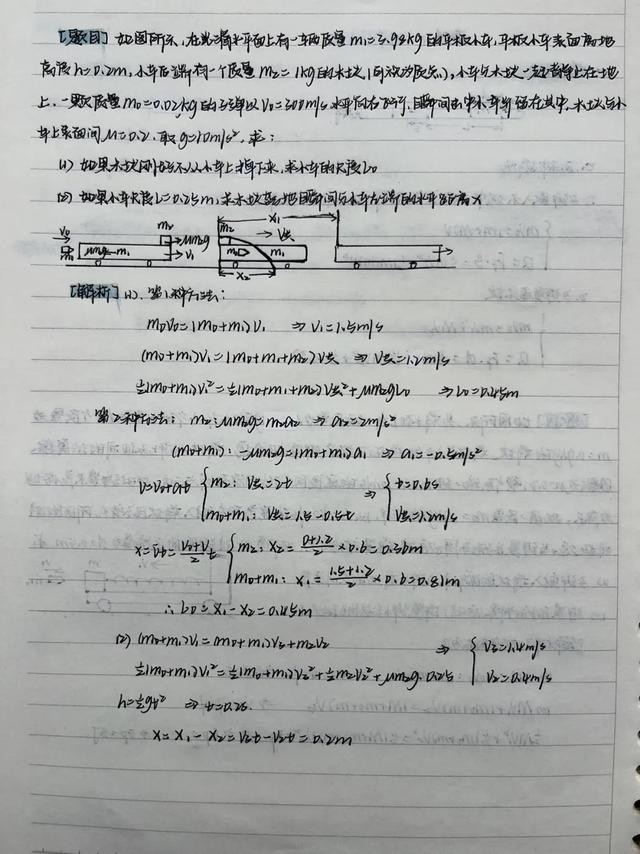 [题目] 如图所示,在光滑水平面上有一车两质量 m₁=3.98kg 的平板小车,平板小车表面离地
高度 h=0.2m,小车右端有一个质量 m₂=1kg 的木块(可视为质点),小车与木块一起静止在地
上.一颗质量 m₀=0.02kg 的子弹以 V₀=300m/s 水平向右飞行,且瞬间击中小车并留在其中,木块与小
车上表面间 μ=0.2.取 g=10m/s²,求:
(1) 如果木块刚好不从小车上掉下来,求小车的长度 L₀
(2) 如果小车长度 L=0.25m,求木块落地瞬间与小车左端的水平距离 x
V₀ μm₂g m₁ m₂ μm₂g V₁
x₁ m₂ V共 m₂g m₁ x₂
[解析] (1). 第1种方法:
m₀V₀=(m₀+m₁)V₁ ⇒ V₁=1.5m/s
(m₀+m₁)V₁=(m₀+m₁+m₂)V共 ⇒ V共=1.2m/s
½(m₀+m₁)V₁²=½(m₀+m₁+m₂)V共²+μm₂gL₀ ⇒ L₀=0.45m
第2种方法: m₂:μm₂g=m₂a₂ ⇒ a₂=2m/s²
(m₀+m₁): -μm₂g=(m₀+m₁)a₁ ⇒ a₁=-0.5m/s²
V=V₀+at { m₂: V共=2t ⇒ { t=0.6s
m₀+m₁: V共=1.5-0.5t V共=1.2m/s
x=v̄t=(V₀+V)/2 t { m₂: x₂=(0+1.2)/2×0.6=0.36m
m₀+m₁: x₁=(1.5+1.2)/2×0.6=0.81m
∴ L₀=x₁-x₂=0.45m
(2) (m₀+m₁)V₁=(m₀+m₁)V₃+m₂V₂ ⇒ { V₃=1.4m/s
½(m₀+m₁)V₁²=½(m₀+m₁)V₃²+½m₂V₂²+μm₂g·0.25 V₂=0.4m/s
h=½gt² ⇒ t=0.2s.
x=x₁-x₂=V₃t-V₂t=0.2m